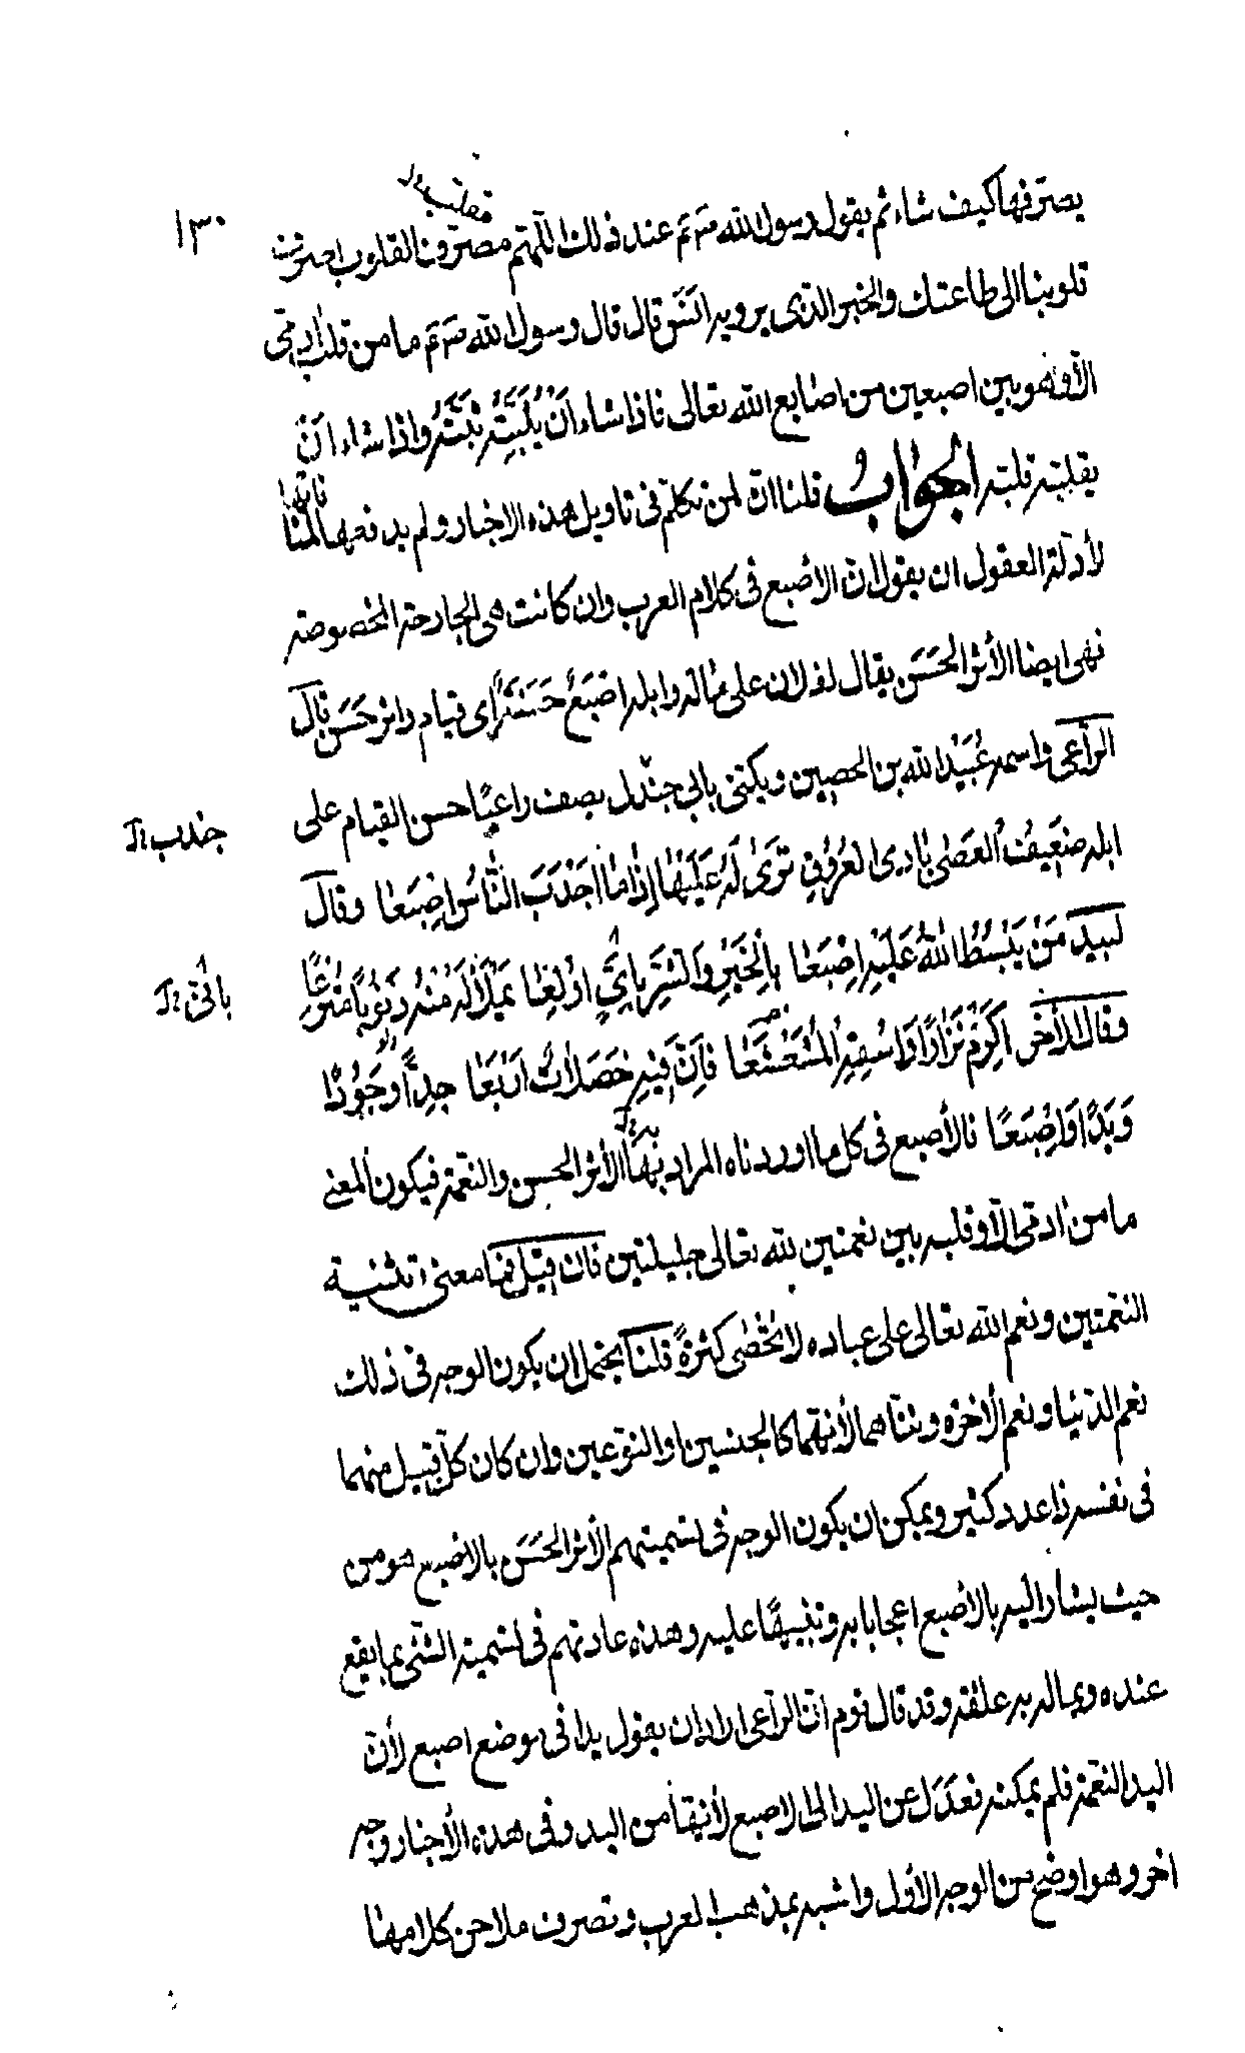 ١٣٠
مقلب خ ل
يصرفها كيف شاء ثم يقول رسول الله صم عند ذلك اللهم مصرف القلوب اصرف
قلوبنا الى طاعتك والخبر الذى يرويه انس قال قال رسول الله صم ما من قلب ادمى
الا وهو بين اصبعين من اصابع الله تعالى فاذا شاء اَنْ يُثَبِّتَهُ ثَبَّتَهُ واذا شاء ان
يقلبه قلبه الجواب قلنا ان لمن تكلم فى تاويل هذه الاخبار ولم يدفعها لمنافاتها
لأدلة العقول ان يقول ان الاصبع فى كلام العرب وان كانت هى الجارحة المخصوصة
فهى ايضا الأثر الحَسَن يقال لفلان على ماله وابله اصْبَعٌ حَسَنَةٌ اى قيام واثر حَسَن قال
الراعى واسمه عُبَيْد الله بن الحصين ويكنى بابى جندل يصف راعيًا حسن القيام على
جندب خ ل
ابله ضَعِيفُ العَصٰى بَادِى العُرُوْقِ تَرَىٰ لَهُ عَلَيْهَا اِذَا مَا اَجْدَبَ النَّاسُ اِصْبَعَا وقال
لبيد مَنْ يَبْسُطُ اللهُ عَلَيْهِ اِصْبَعَا بِالْخَيْرِ وَالشَّرِّ بِاَيٍّ اُوْلِعَا يَمْلَأُ لَهُ مِنْهُ ذَنُوْبًا مُتْرَعًا
وقال الاخر اَكْرِمْ نَزَارًا وَاسْقِهِ المُشَعْشَعَا فَاِنَّ فِيْهِ خَصَلَاتٌ اَرْبَعَا جِدًّا وَجُوْدًا
وَيَدًا وَاِصْبَعًا فالأصبع فى كل ما اوردناه المراد بها الأثر الحسن والنعمة فيكون المعنى
به خ ل
ما من ادمى الا وقلبه بين نعمتين لله تعالى جليلتين فان قيل فما معنى تثنية
النعمتين ونعم الله تعالى على عباده لا تُحْصٰى كثرةً قلنا يحتمل ان يكون الوجه فى ذلك
نعم الدنيا ونعم الاخره وثناهما لأنهما كالجنسين او النوعين وان كان كل قبيل منهما
فى نفسه ذا عدد كثير ويمكن ان يكون الوجه فى تسميتهم الأثر الحَسَن بالاصبع هو من
حيث يشار اليه بالاصبع اعجابا به وتنبيهًا عليه وهذه عادتهم فى تسمية الشئ بما يقع
عنده وبما له به علقة وقد قال قوم ان الراعى اراد ان يقول يدا فى موضع اصبع لأن
اليد النعمة فلم يمكنه فعَدَل عن اليد الى الاصبع لأنها من اليد وفى هذه الأخبار وجه
اخر وهو اوضح من الوجه الأول واشبه بمذهب العرب وتصرف ملاحن كلامها